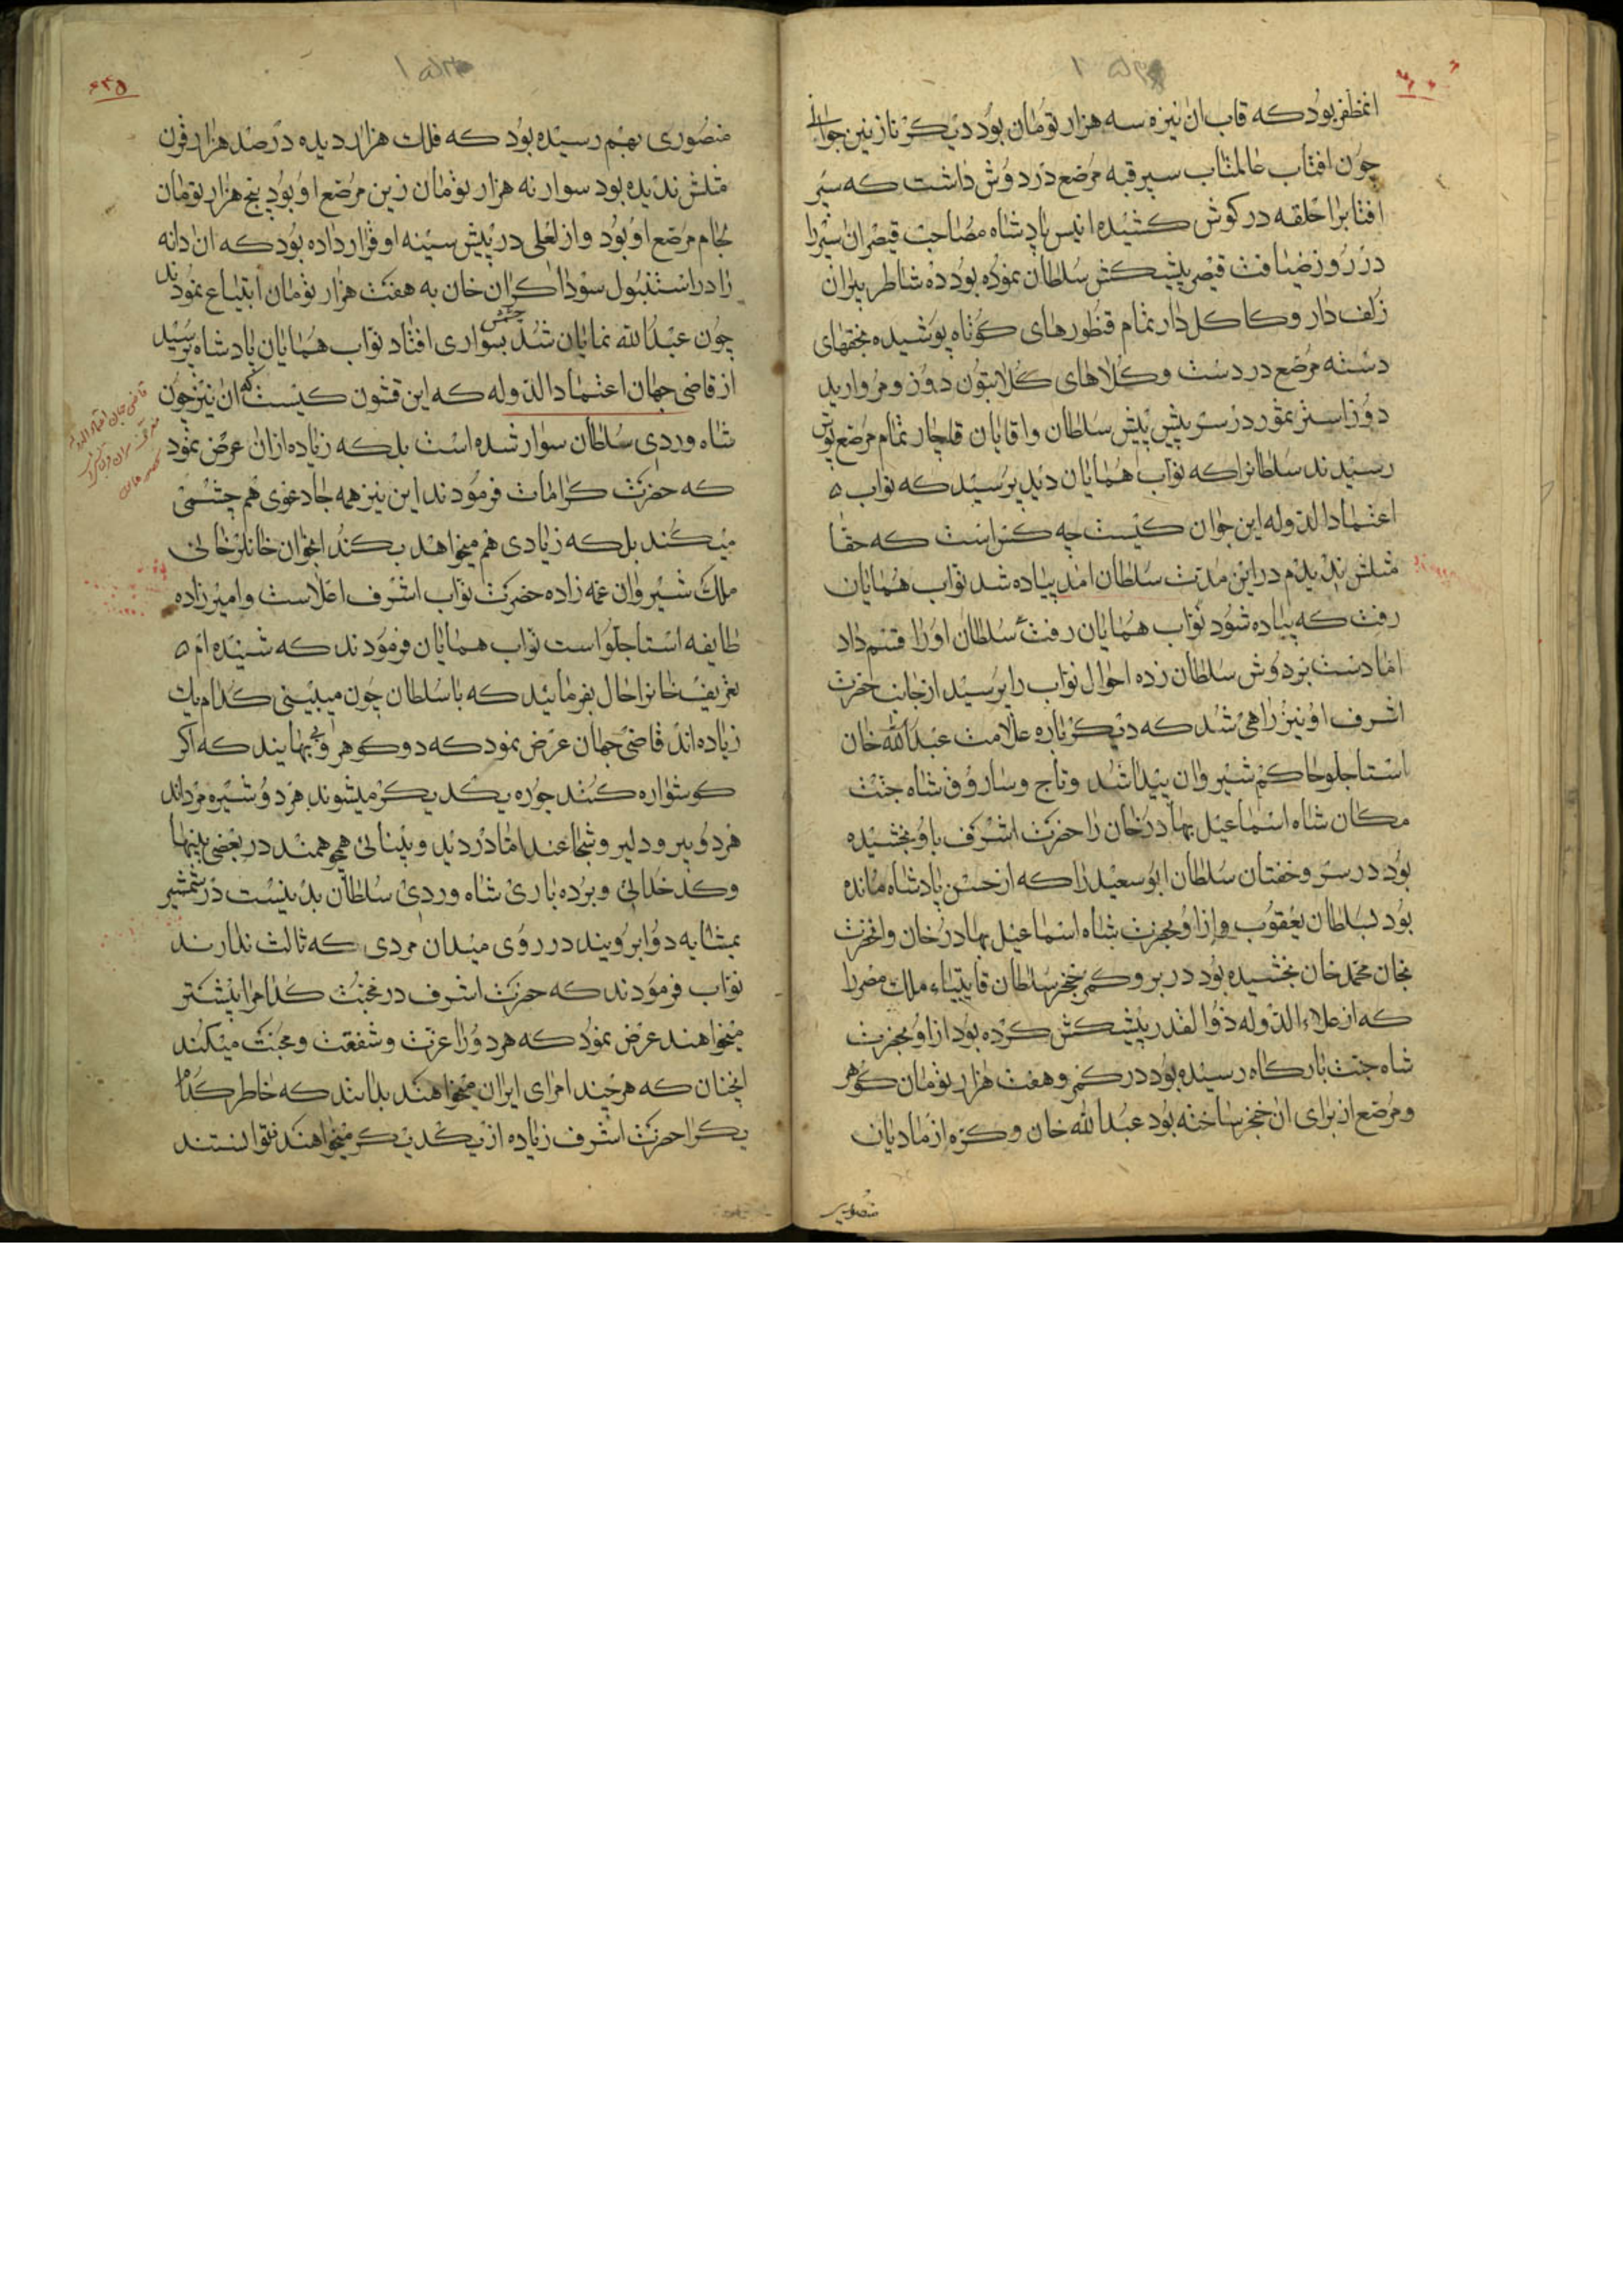 انمظفر بود که قاب ان نیزه سه هزار تومان بود دیکر نازنین جوانی
چون افتاب عالمتاب سپر قبه مرصع در دوش داشت که سپر
افتابرا حلقه در کوش کشیده انیس پادشاه مصاحب قیصر ان سپر را
در روز ضیافت قیصر پیشکش سلطان نموده بود ده شاطر
زلف دار و کاکل دار تمام قنطورهای کوتاه پوشیده
دسته مرصع در دست و کلاهای کلابتون دوز و مروارید
دوز در سر پیش پیش سلطان واقایان قاجار تمام مرصع پوش
رسیدند سلطانرا که نواب همایان دید پرسید که نواب
اعتمادالدوله این جوان کیست چه کس است که حقا
مثلش ندیدم در این مدت سلطان امد پیاده شد نواب همایان
رفت که پیاده شود نواب همایان رفت سلطان او را قسم داد
اما دست بر دوش سلطان زده احوال نواب را پرسید از جانب حضرت
اشرف او نیز راهی شد که دیکر باره علامت عبدالله خان
استاجلو حاکم شیروان پیدا شد وتاج وساروق شاه جنت
مکان شاه اسماعیل بهادر خان را حضرت اشرف باو بخشیده
بود در سر وخفتان سلطان ابوسعید را که از حسن پادشاه مانده
بود بسلطان یعقوب وازاو بحضرت شاه اسماعیل بهادر خان وانحضرت
بخان محمد خان بخشیده بود در بر وکمر خنجر سلطان قایتبای ملک مصر را
که از علاء الدوله ذوالقدر پیشکش کرده بود ازاو بحضرت
شاه جنت بارکاه رسیده بود در کمر و هفت هزار تومان کوهر
ومرصع از برای ان خنجر ساخته بود عبدالله خان وکره از مادیان
منصوری
منصوری بهم رسیده بود که فلک هزار دیده در صد هزار قرن
مثلش ندیده بود سوار نه هزار تومان زین مرصع او بود پنج هزار تومان
لجام مرصع او بود و از لعلی در پیش سینه او قرار داده بود که ان دانه
را در استنبول سوداکران خان به هفت هزار تومان ابتیاع نمودند
چون عبدالله نمایان شد چشمش بسواری افتاد نواب همایان پادشاه پرسید
از قاضی جهان اعتمادالدوله که این قشون کیست که ان نیز چون
شاه وردی سلطان سوار شده است بلکه زیاده ازان عرض نمود
که حضرت کرامات فرمودند این نیز همه جا دعوی هم چشمی
میکند بلکه زیادی هم میخواهد بکند اخوان خانلرخانی
ملک شیروان عمه زاده حضرت نواب اشرف اعلاست وامیرزاده
طایفه استاجلو است نواب همایان فرمودند که شنیده ام
تعریف خانرا حال بفرمایید که با سلطان چون میبینی کدام یک
زیاده اند قاضی جهان عرض نمود که دو کوهر وبی بهایند که اکر
کوشواره کنند جوره یکدیکر میشوند هر دو شیره مرداند
هر دو پیر ودلیر وشجاعند اما در دید وبینائی هیچ همند در بعضی
وکدخدائی وبرده باری شاه وردی سلطان بد نیست در شمشیر
بمثابه دو ابرویند در روی میدان مردی که ثالث ندارند
نواب فرمودند که حضرت اشرف در محبت کدام را بیشتر
میخواهند عرض نمود که هر دو را عزت وشفقت ومحبت میکنند
انچنان که هر چند امرای ایران میخواهند بدانند که خاطر کدام
یک را حضرت اشرف زیاده از یکدیکر میخواهند نتوانستند
قاضی جهان اعتماد الدوله